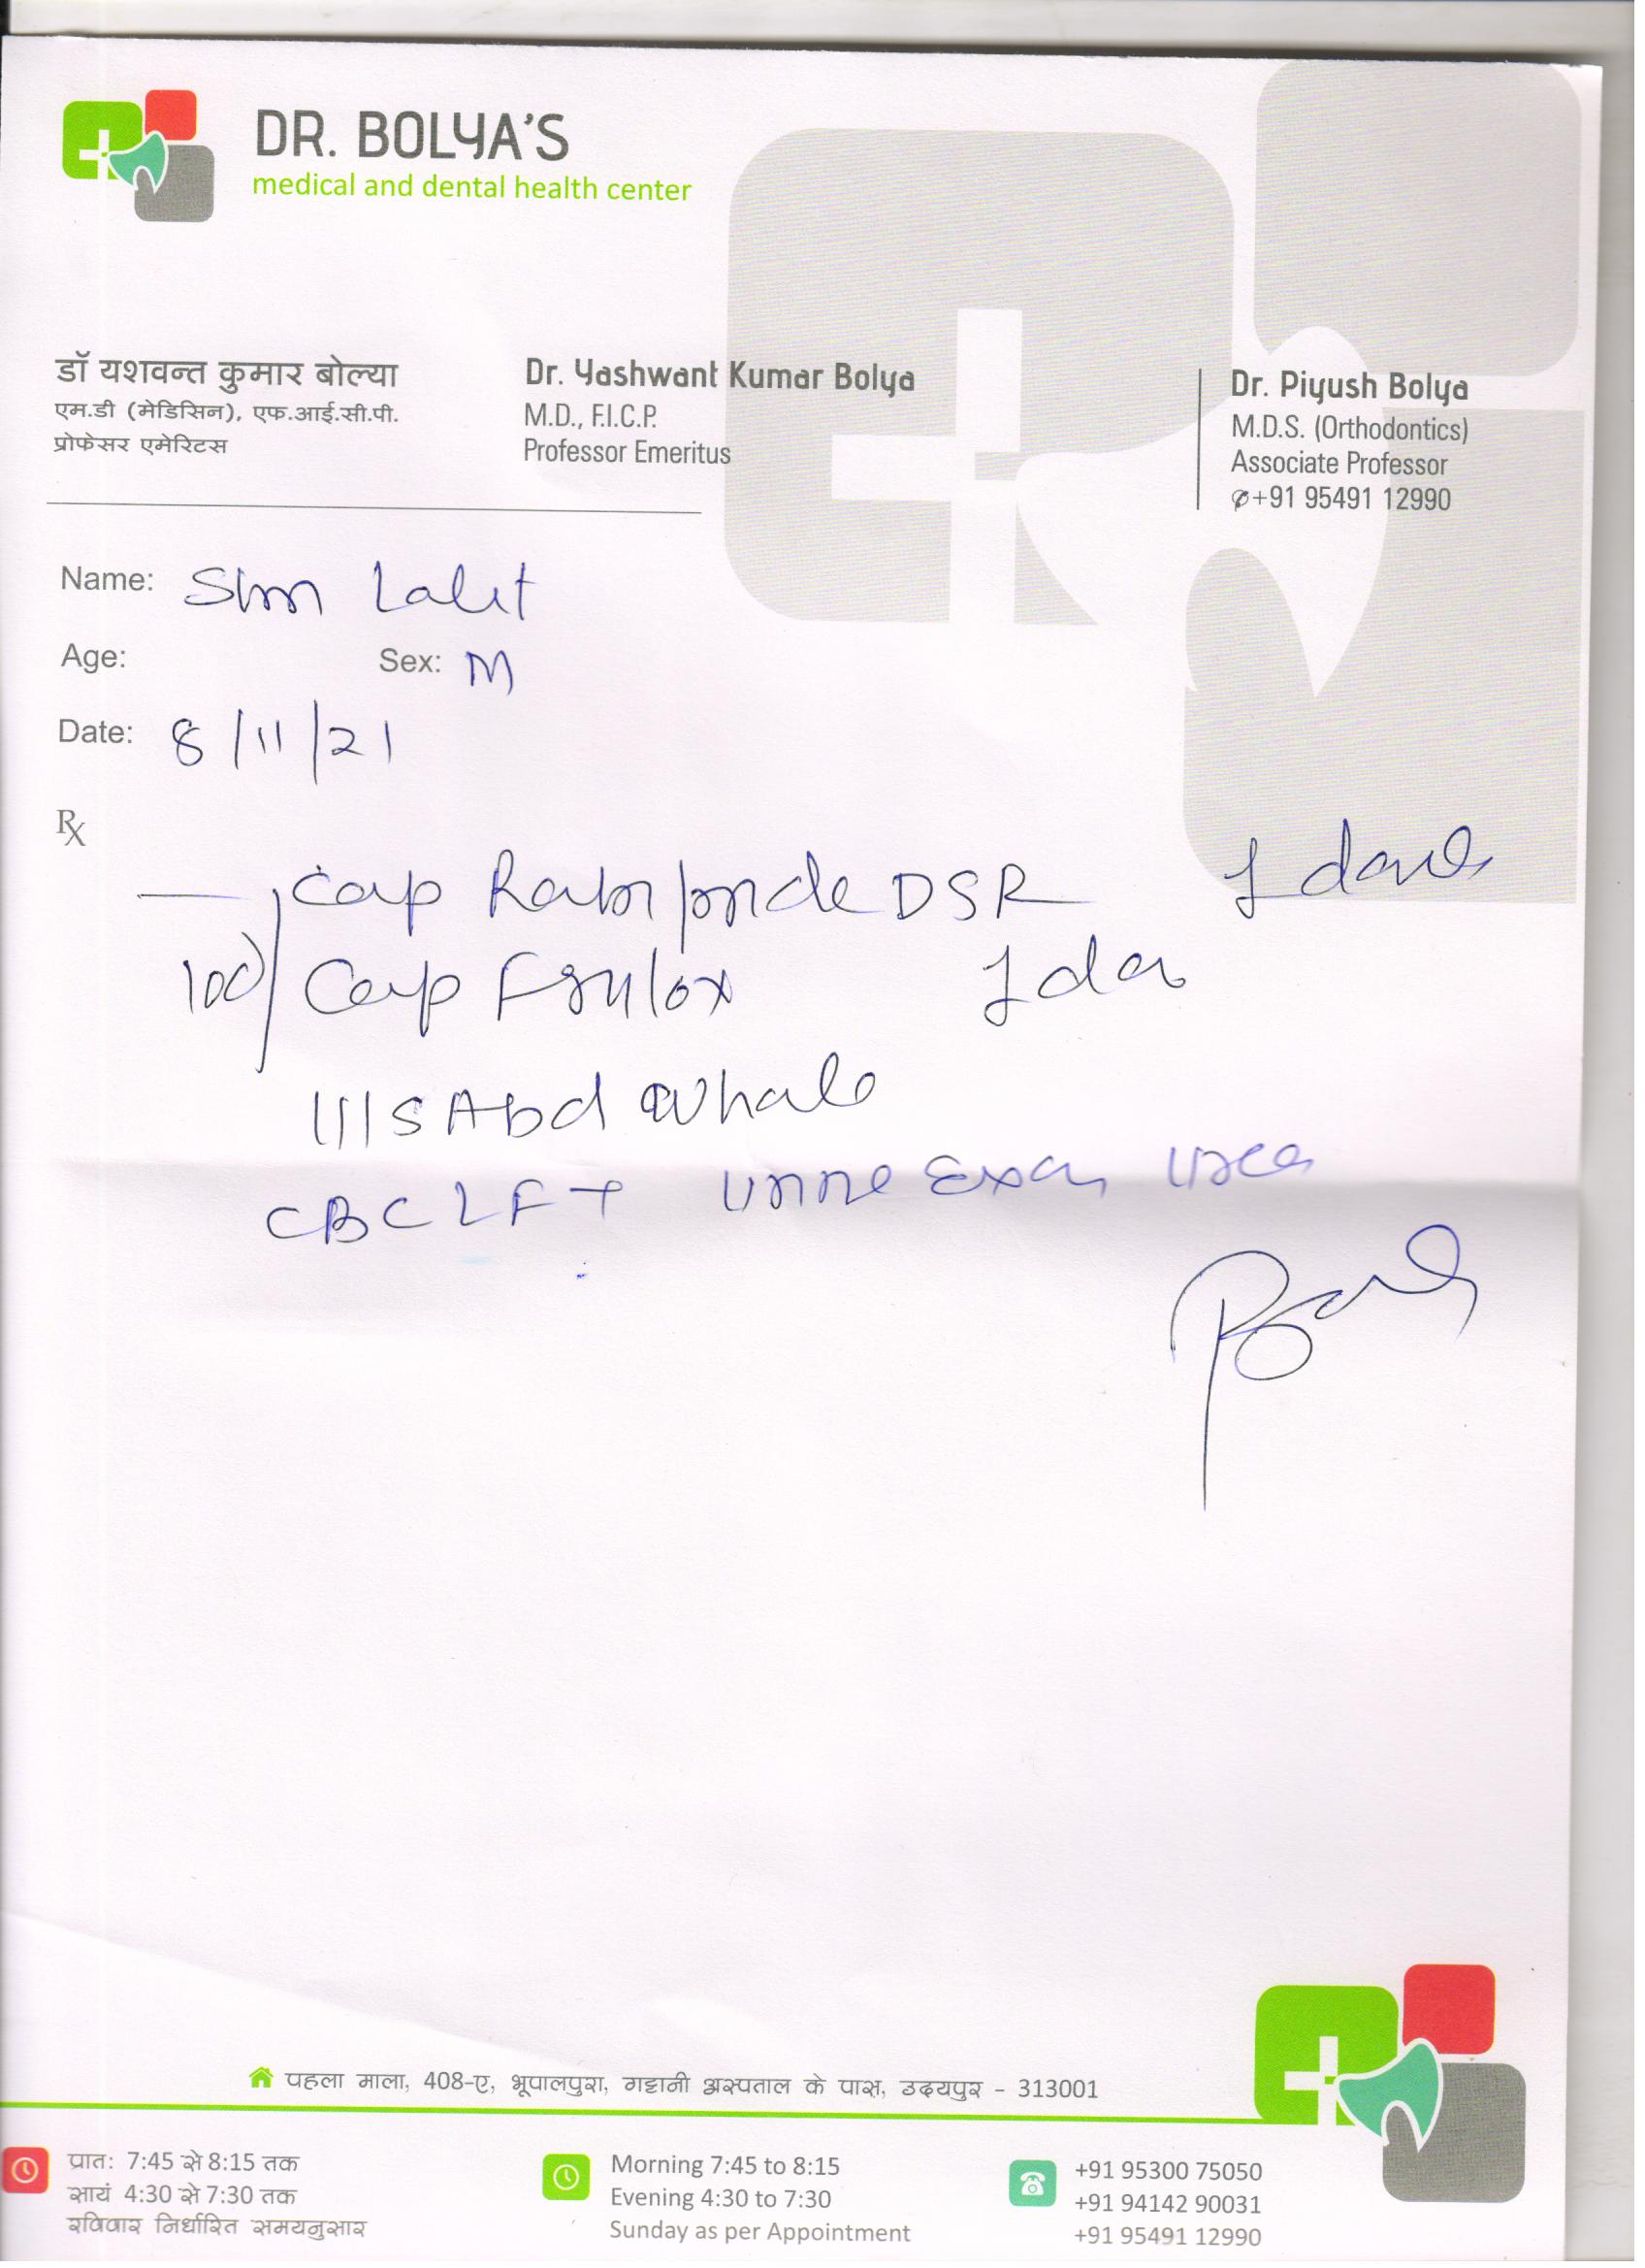 DR. BOLYA'S
medical and dental health center
डॉ यशवन्त कुमार बोल्या
एम.डी (मेडिसिन), एफ.आई.सी.पी.
प्रोफेसर एमेरिटस
Dr. Yashwant Kumar Bolya
M.D., F.I.C.P.
Professor Emeritus
Dr. Piyush Bolya
M.D.S. (Orthodontics)
Associate Professor
✆+91 95491 12990
Name: Lalit
Age: Sex: M
Date: 8/11/21
Rx
Cap DSR 1
100 Cap 1
Abd Whole
CBC LFT Urine Exam
पहला माला, 408-ए, भूपालपुरा, गट्टानी अस्पताल के पास, उदयपुर - 313001
प्रात: 7:45 से 8:15 तक
सायं 4:30 से 7:30 तक
रविवार निर्धारित समयनुसार
Morning 7:45 to 8:15
Evening 4:30 to 7:30
Sunday as per Appointment
+91 95300 75050
+91 94142 90031
+91 95491 12990